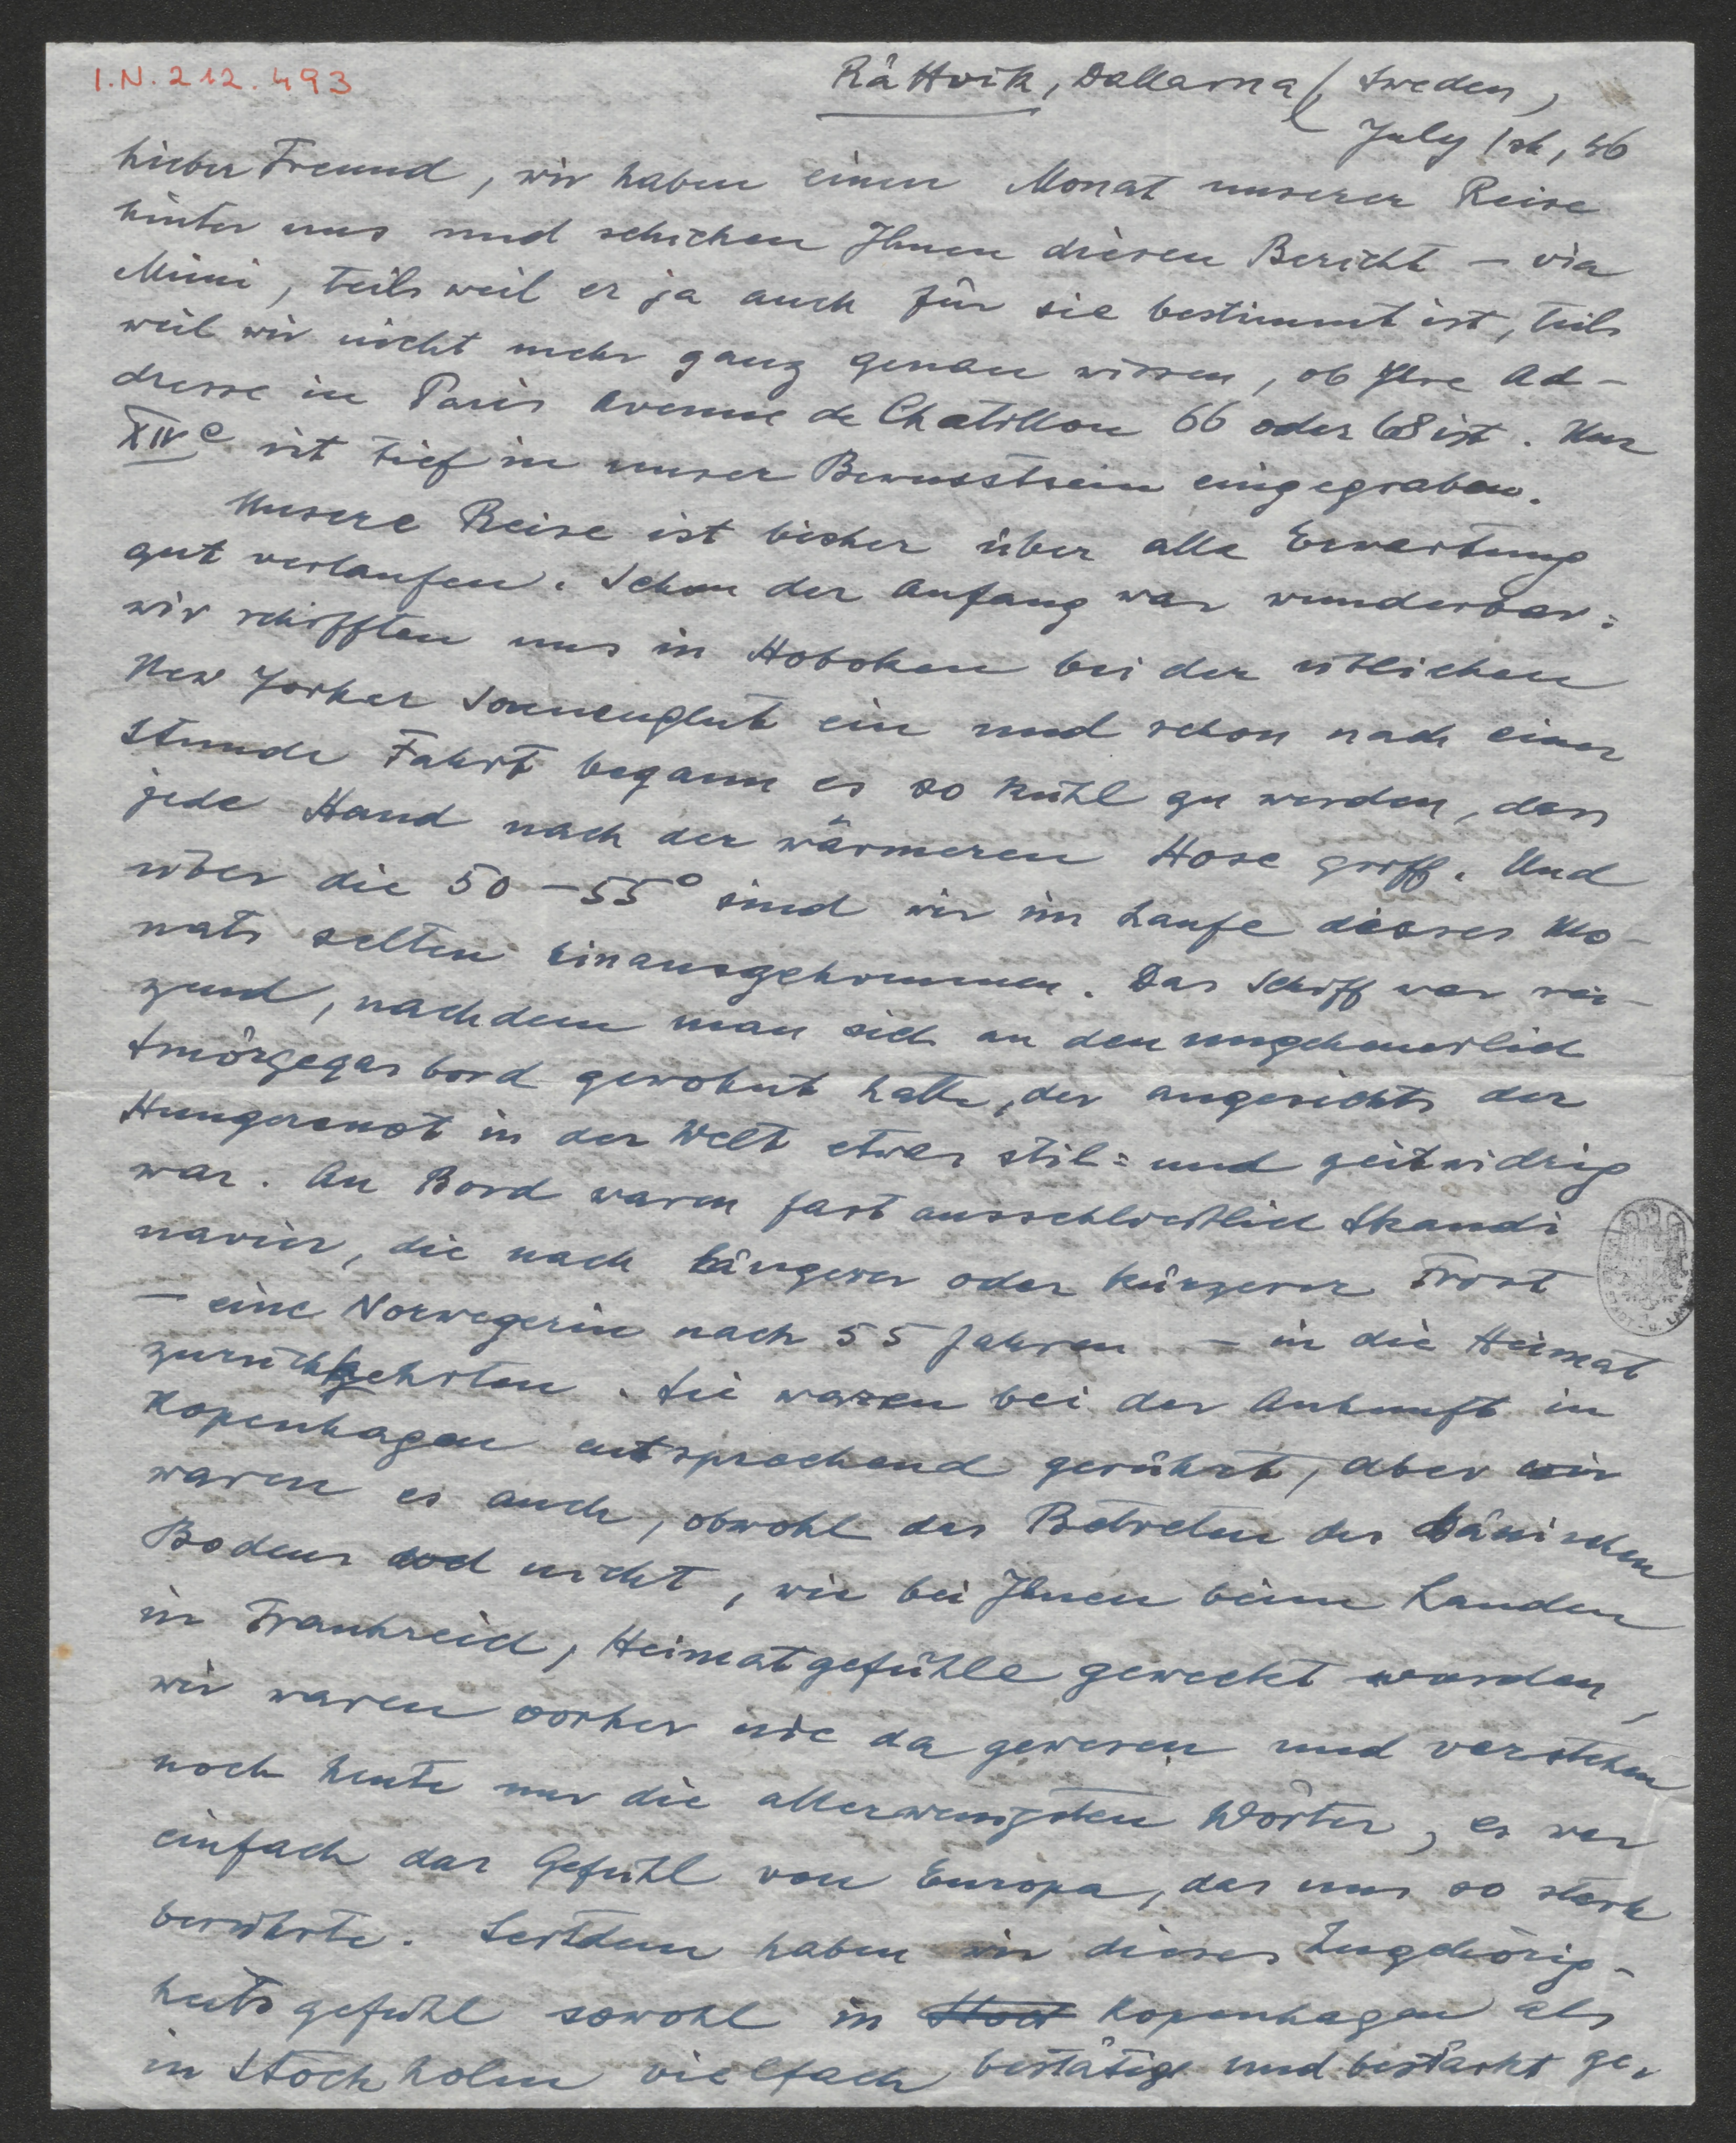 I.N. 212.493
Rättvik, Dallarna, Sweden,
July 1st, 46
Lieber Freund, wir haben einen Monat unserer Reise
hinter uns und schicken Ihnen diesen Bericht – via
Mimi, teils weil er ja auch für sie bestimmt ist, teils
weil wir nicht mehr ganz genau wissen, ob Ihre Ad-
dresse in Paris Avenue de Chatillon 66 oder 68 ist. Nur
XIVe ist tief in unser Bewusstsein eingegraben.
Unsere Reise ist bisher über alle Erwartung
gut verlaufen. Schon der Anfang war wunderbar:
wir schifften uns in Hoboken bei der üblichen
New Yorker Sonnenglut ein und schon nach einer
Stunde Fahrt begann es so kühl zu werden, dass
jede Hand nach der wärmeren Hose griff. Und
über die 50–55° sind wir im Laufe dieses Mo-
nats selten hinausgekommen. Das Schiff war rei-
zend, nachdem man sich an den ungeheuerlich
Smörgegasbord gewöhnt hatte, der angesichts der
Hungersnot in der Welt etwas stil- und zeitwidrig
war. An Bord waren fast ausschliesslich Skandi
navier, die nach längerer oder kürzerer Frist
– eine Norwegerin nach 55 Jahren – in die Heimat
zurückkehrten. Sie waren bei der Ankunft in
Kopenhagen entsprechend gerührt, aber wir
waren es auch, obwohl das Betreten des dänischen
Bodens doch nicht, wie bei Ihnen beim Landen
in Frankreich, Heimatgefühle geweckt worden,
wir waren vorher nie da gewesen und verstehen
noch heute nur die allerwenigsten Wörter, es war
einfach das Gefühl von Europa, das uns so stark
berührte. Seitdem haben wir dieses Zugehörig-
keitsgefühl sowohl in Stoc Kopenhagen als
in Stockholm vielfach bestätigt und bestärkt ge-